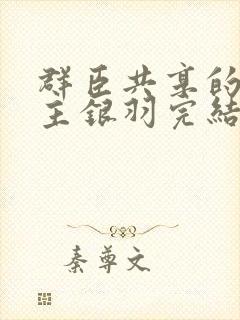 群臣共享的
主银羽完结
秦尊文